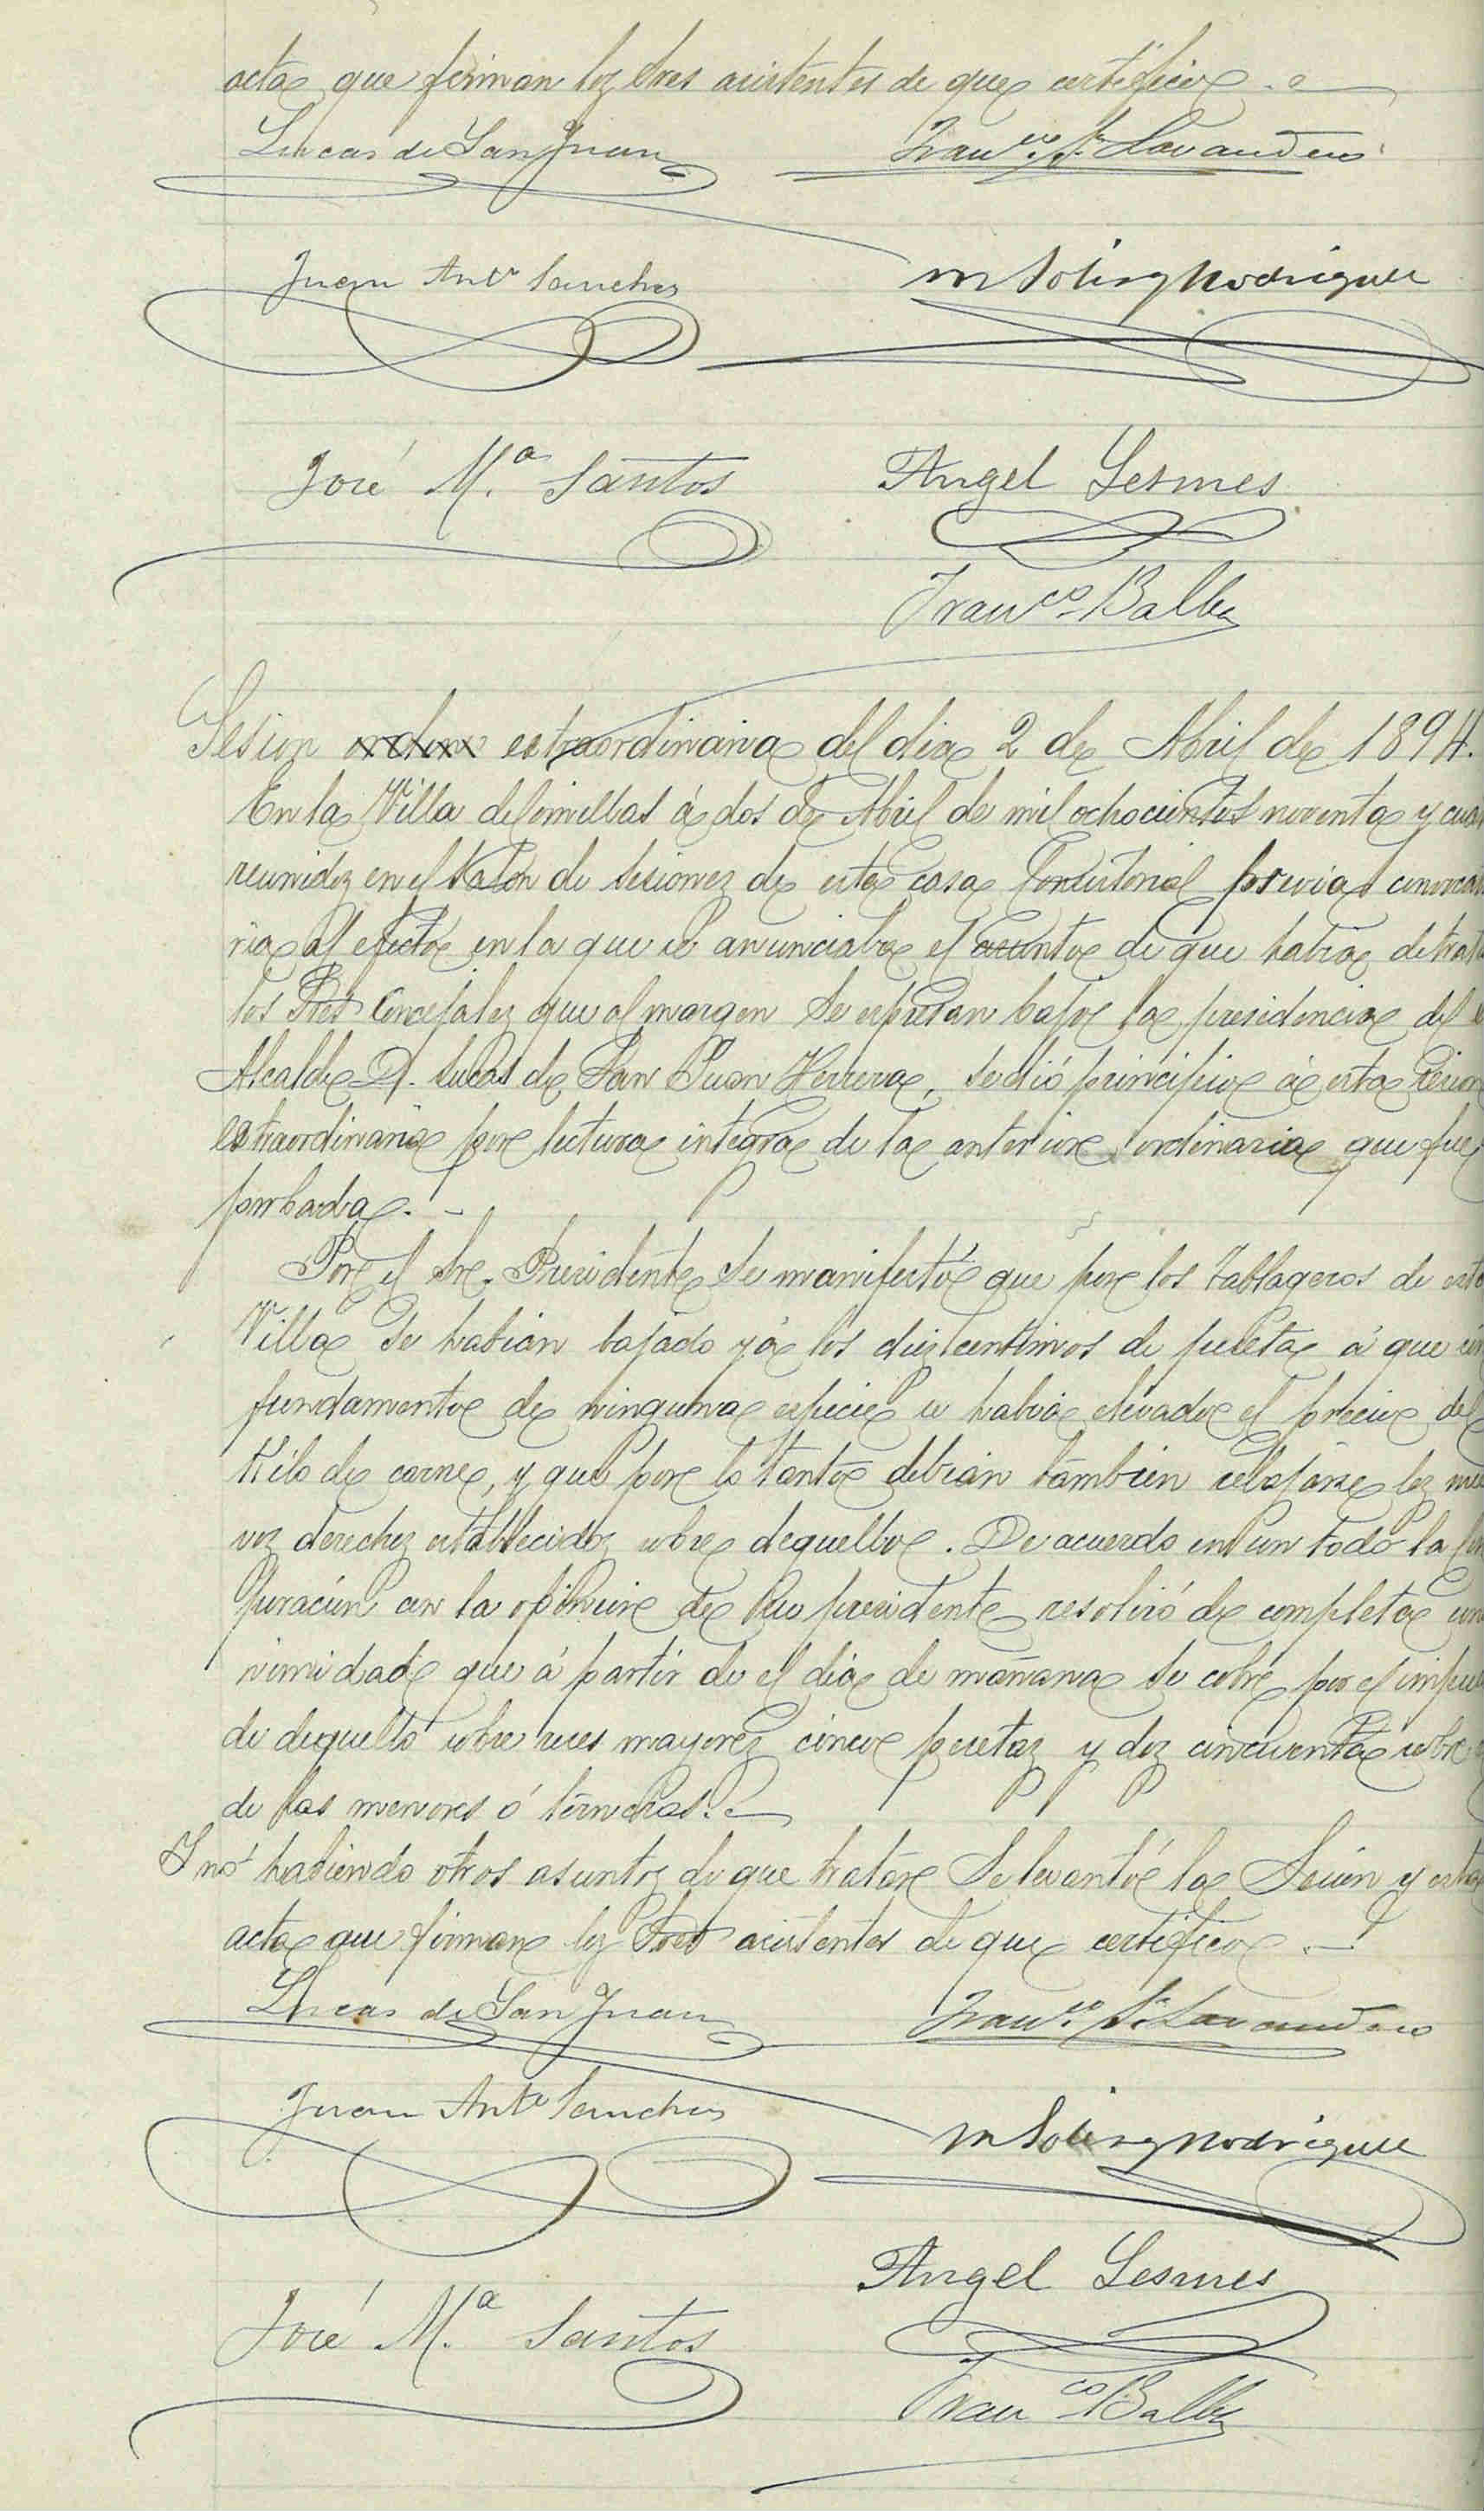 acta que firman los Sres asistentes de que certifico.
Lucas de San Juan Fran.co S. Lavandero
Juan Ant.o Sanchez M Solis y Rodriguez
José M.a Santos Angel Lesmes
Fran.co Balbu
Sesion ordin extraordinaria del dia 2 de Abril de 1894.
En la Villa de Cimillas á dos de Abril de mil ochocientos noventa y cua
reunidos en el Salon de Sesiones de esta Casa Consistorial previa convoca
ria al efecto en la que se anunciaba el asunto de que habia de trata
los Sres Concejales que al margen se espresan bajo la presidencia del
Alcalde D. Lucas de San Juan Herrera, se dió principio á esta Sesion
estraordinaria por lectura integra de la anterior ordinaria que fue
probada.
Por el Sr. Presidente se manifestó que por los tablageros de esta
Villa se habian bajado yá los diez centimos de peseta á que sin
fundamento de ninguna especie se habia elevado el precio del
Kilo de carne, y que por lo tanto debian tambien rebajarse los nue
vos derechos establecidos sobre deguello. De acuerdo en un todo la Cor
poración con la opinion de su presidente resolvió de completa una
nimidad que á partir de el dia de mañana se cobre por el impue
de deguello sobre reses mayores cinco pesetas y dos cincuenta sobre
de las menores ó terneras.
Y no habiendo otros asuntos de que tratar se levantó la Sesión y esta
acta que firman los Sres asistentes de que certifico.
Lucas de San Juan Fran.co S. Lavandero
Juan Ant.o Sanchez M Solis y Rodriguez
Angel Lesmes
José M.a Santos
Fran.co Balbu